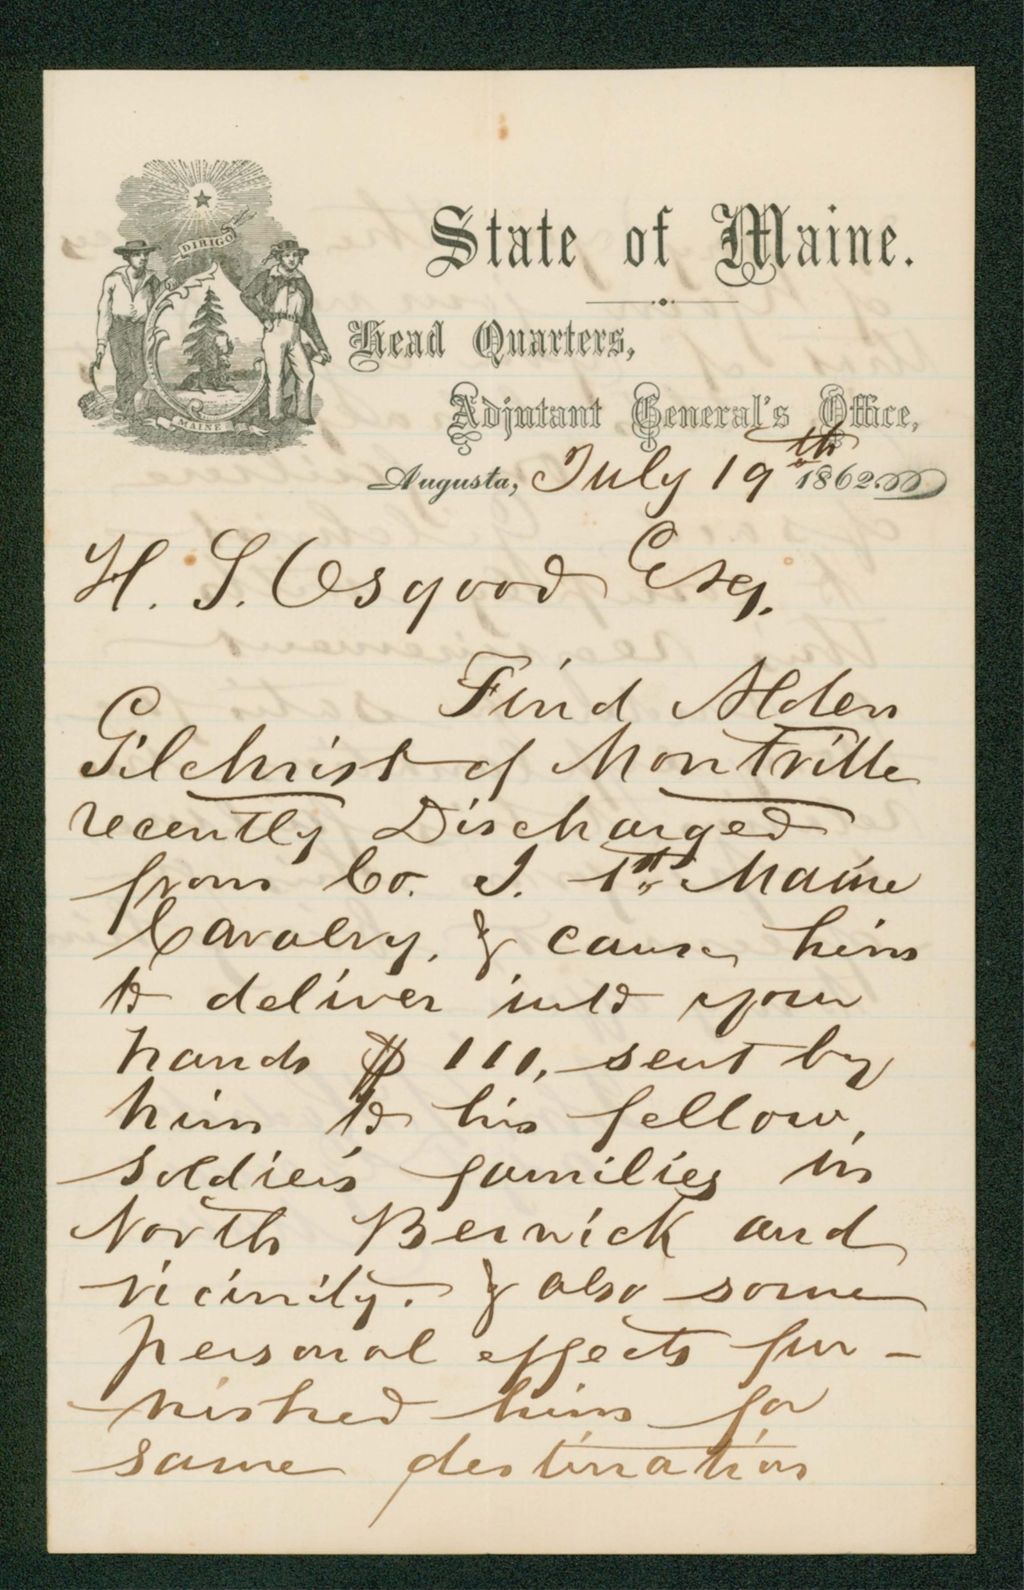 DIRIGO
MAINE
State of Maine.
Head Quarters,
Adjutant General's Office,
Augusta, July 19th 1862
H. S. Osgood Esq.
Find Alden
Gilchrist of Montville
recently Discharged
from Co. I. 1st Maine
Cavalry, & cause him
to deliver into your
hands $ 111, sent by
him to his fellow,
soldiers families in
North Berwick and
vicinity. & also some
personal effects fur-
nished him for
same destination